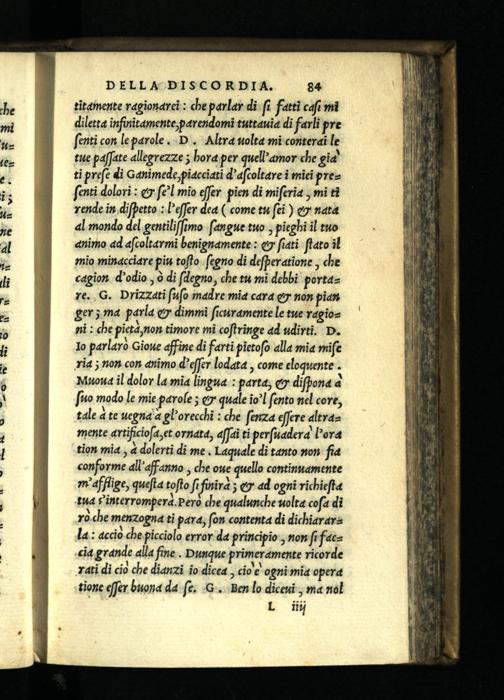 DELLA DISCORDIA. 84
titamente ragionarei : che parlar di si fatti casi mi
diletta infinitamente, parendomi tuttavia di farli pre
senti con le parole. D. Altra uolta mi conterai le
tue passate allegrezze ; hora per quell'amor che gia'
ti prese di Ganimede, piacciati d'ascoltare i miei pre=
senti dolori : & se'l mio esser pien di miseria, mi ti
rende in dispetto : l'esser dea ( come tu sei ) & nata
al mondo del gentilissimo sangue tuo, pieghi il tuo
animo ad ascoltarmi benignamente : & siati stato il
mio minacciare piu tosto segno di desperatione, che
cagion d'odio, ò di sdegno, che tu mi debbi porta=
re. G. Drizzati suso madre mia cara & non pian
ger ; ma parla & dimmi sicuramente le tue ragio=
ni : che pietà, non timore mi costringe ad udirti. D.
Io parlarò Gioue affine di farti pietoso alla mia mise
ria ; non con animo d'esser lodata, come eloquente.
Muoua il dolor la mia lingua : parta, & dispona à
suo modo le mie parole ; & quale io'l sento nel core,
tale à te uegna à gl'orecchi : che senza essere altra=
mente artificiosa, et ornata, assai ti persuaderà l'ora
tion mia, à dolerti di me. Laquale di tanto non fia
conforme all'affanno, che oue quello continuamente
m'afflige, questa tosto si finirà ; & ad ogni richiesta
tua s'interromperà. Però che qualunche uolta cosa di
rò che menzogna ti para, son contenta di dichiarar=
la : acciò che picciolo error da principio, non si fac=
cia grande alla fine. Dunque primeramente ricorde
rati di ciò che dianzi io dicea, cio è ogni mia opera
tione esser buona da se. G. Ben lo diceui, ma nol
L iiij